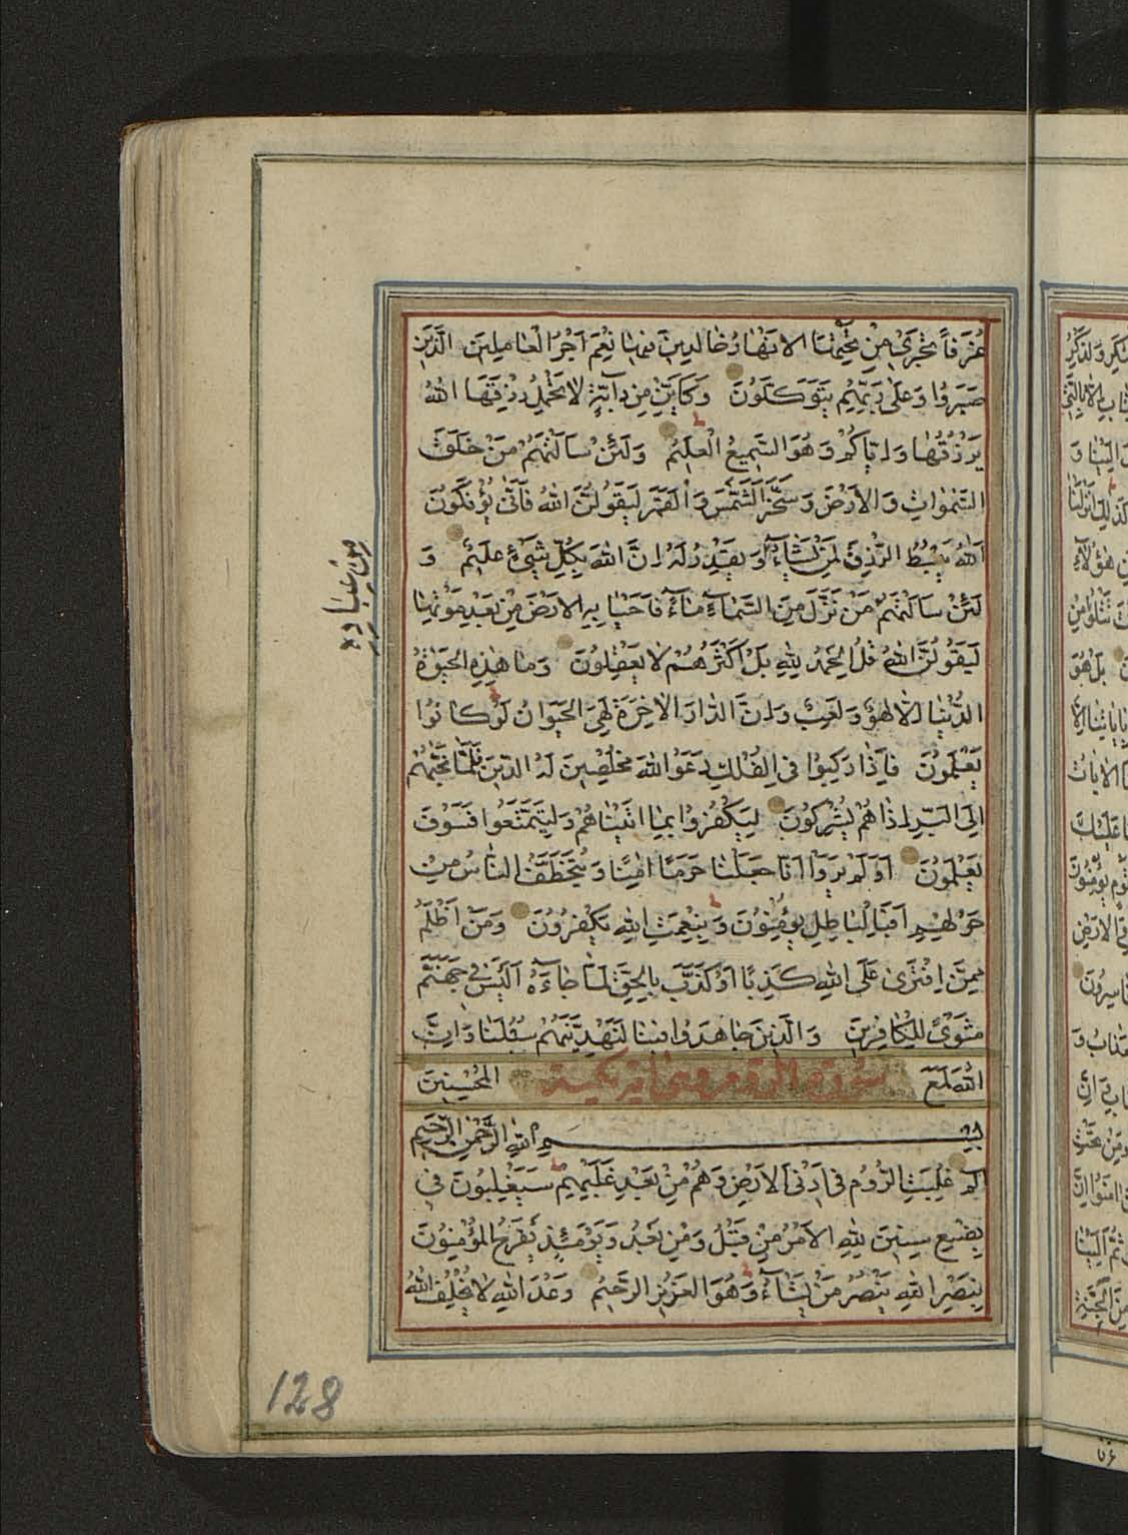 غُرَفاً تَجْرِي مِنْ تَحْتِهَا الْاَنْهَارُ خَالِدِينَ فِيهَا نِعْمَ اَجْرُ الْعَامِلِينَ الَّذِينَ
صَبَرُوا وَعَلَى رَبِّهِمْ يَتَوَكَّلُونَ وَكَاَيِّنْ مِنْ دَابَّةٍ لَا تَحْمِلُ رِزْقَهَا اللهُ
يَرْزُقُهَا وَاِيَّاكُمْ وَهُوَ السَّمِيعُ الْعَلِيمُ وَلَئِنْ سَاَلْتَهُمْ مَنْ خَلَقَ
السَّمٰوَاتِ وَالْاَرْضَ وَسَخَّرَ الشَّمْسَ وَالْقَمَرَ لَيَقُولُنَّ اللهُ فَاَنّٰى يُؤْفَكُونَ
اَللهُ يَبْسُطُ الرِّزْقَ لِمَنْ يَشَآءُ وَيَقْدِرُ لَهُ اِنَّ اللهَ بِكُلِّ شَيْءٍ عَلِيمٌ وَ
لَئِنْ سَاَلْتَهُمْ مَنْ نَزَّلَ مِنَ السَّمَآءِ مَآءً فَاَحْيَا بِهِ الْاَرْضَ مِنْ بَعْدِ مَوْتِهَا
لَيَقُولُنَّ اللهُ قُلِ الْحَمْدُ لِلّٰهِ بَلْ اَكْثَرُهُمْ لَا يَعْقِلُونَ وَمَا هٰذِهِ الْحَيٰوةُ
الدُّنْيَا اِلَّا لَهْوٌ وَلَعِبٌ وَاِنَّ الدَّارَ الْاٰخِرَةَ لَهِيَ الْحَيَوَانُ لَوْ كَانُوا
يَعْلَمُونَ فَاِذَا رَكِبُوا فِي الْفُلْكِ دَعَوُا اللهَ مُخْلِصِينَ لَهُ الدِّينَ فَلَمَّا نَجّٰيهُمْ
اِلَى الْبَرِّ اِذَا هُمْ يُشْرِكُونَ لِيَكْفُرُوا بِمَا اٰتَيْنَاهُمْ وَلِيَتَمَتَّعُوا فَسَوْفَ
يَعْلَمُونَ اَوَلَمْ يَرَوْا اَنَّا جَعَلْنَا حَرَمًا اٰمِنًا وَيُتَخَطَّفُ النَّاسُ مِنْ
حَوْلِهِمْ اَفَبِالْبَاطِلِ يُؤْمِنُونَ وَبِنِعْمَتِ اللهِ يَكْفُرُونَ وَمَنْ اَظْلَمُ
مِمَّنِ افْتَرٰى عَلَى اللهِ كَذِبًا اَوْ كَذَّبَ بِالْحَقِّ لَمَّا جَآءَهُ اَلَيْسَ فِي جَهَنَّمَ
مَثْوًى لِلْكَافِرِينَ وَالَّذِينَ جَاهَدُوا فِينَا لَنَهْدِيَنَّهُمْ سُبُلَنَا وَاِنَّ
اللهَ لَمَعَ سورة الروم مكية الْمُحْسِنِينَ
بِسْمِ اللهِ الرَّحْمٰنِ الرَّحِيمِ
الٓمٓ غُلِبَتِ الرُّومُ فِي اَدْنَى الْاَرْضِ وَهُمْ مِنْ بَعْدِ غَلَبِهِمْ سَيَغْلِبُونَ فِي
بِضْعِ سِنِينَ لِلّٰهِ الْاَمْرُ مِنْ قَبْلُ وَمِنْ بَعْدُ وَيَوْمَئِذٍ يَفْرَحُ الْمُؤْمِنُونَ
بِنَصْرِ اللهِ يَنْصُرُ مَنْ يَشَآءُ وَهُوَ الْعَزِيزُ الرَّحِيمُ وَعْدَ اللهِ لَا يُخْلِفُ اللهُ
128